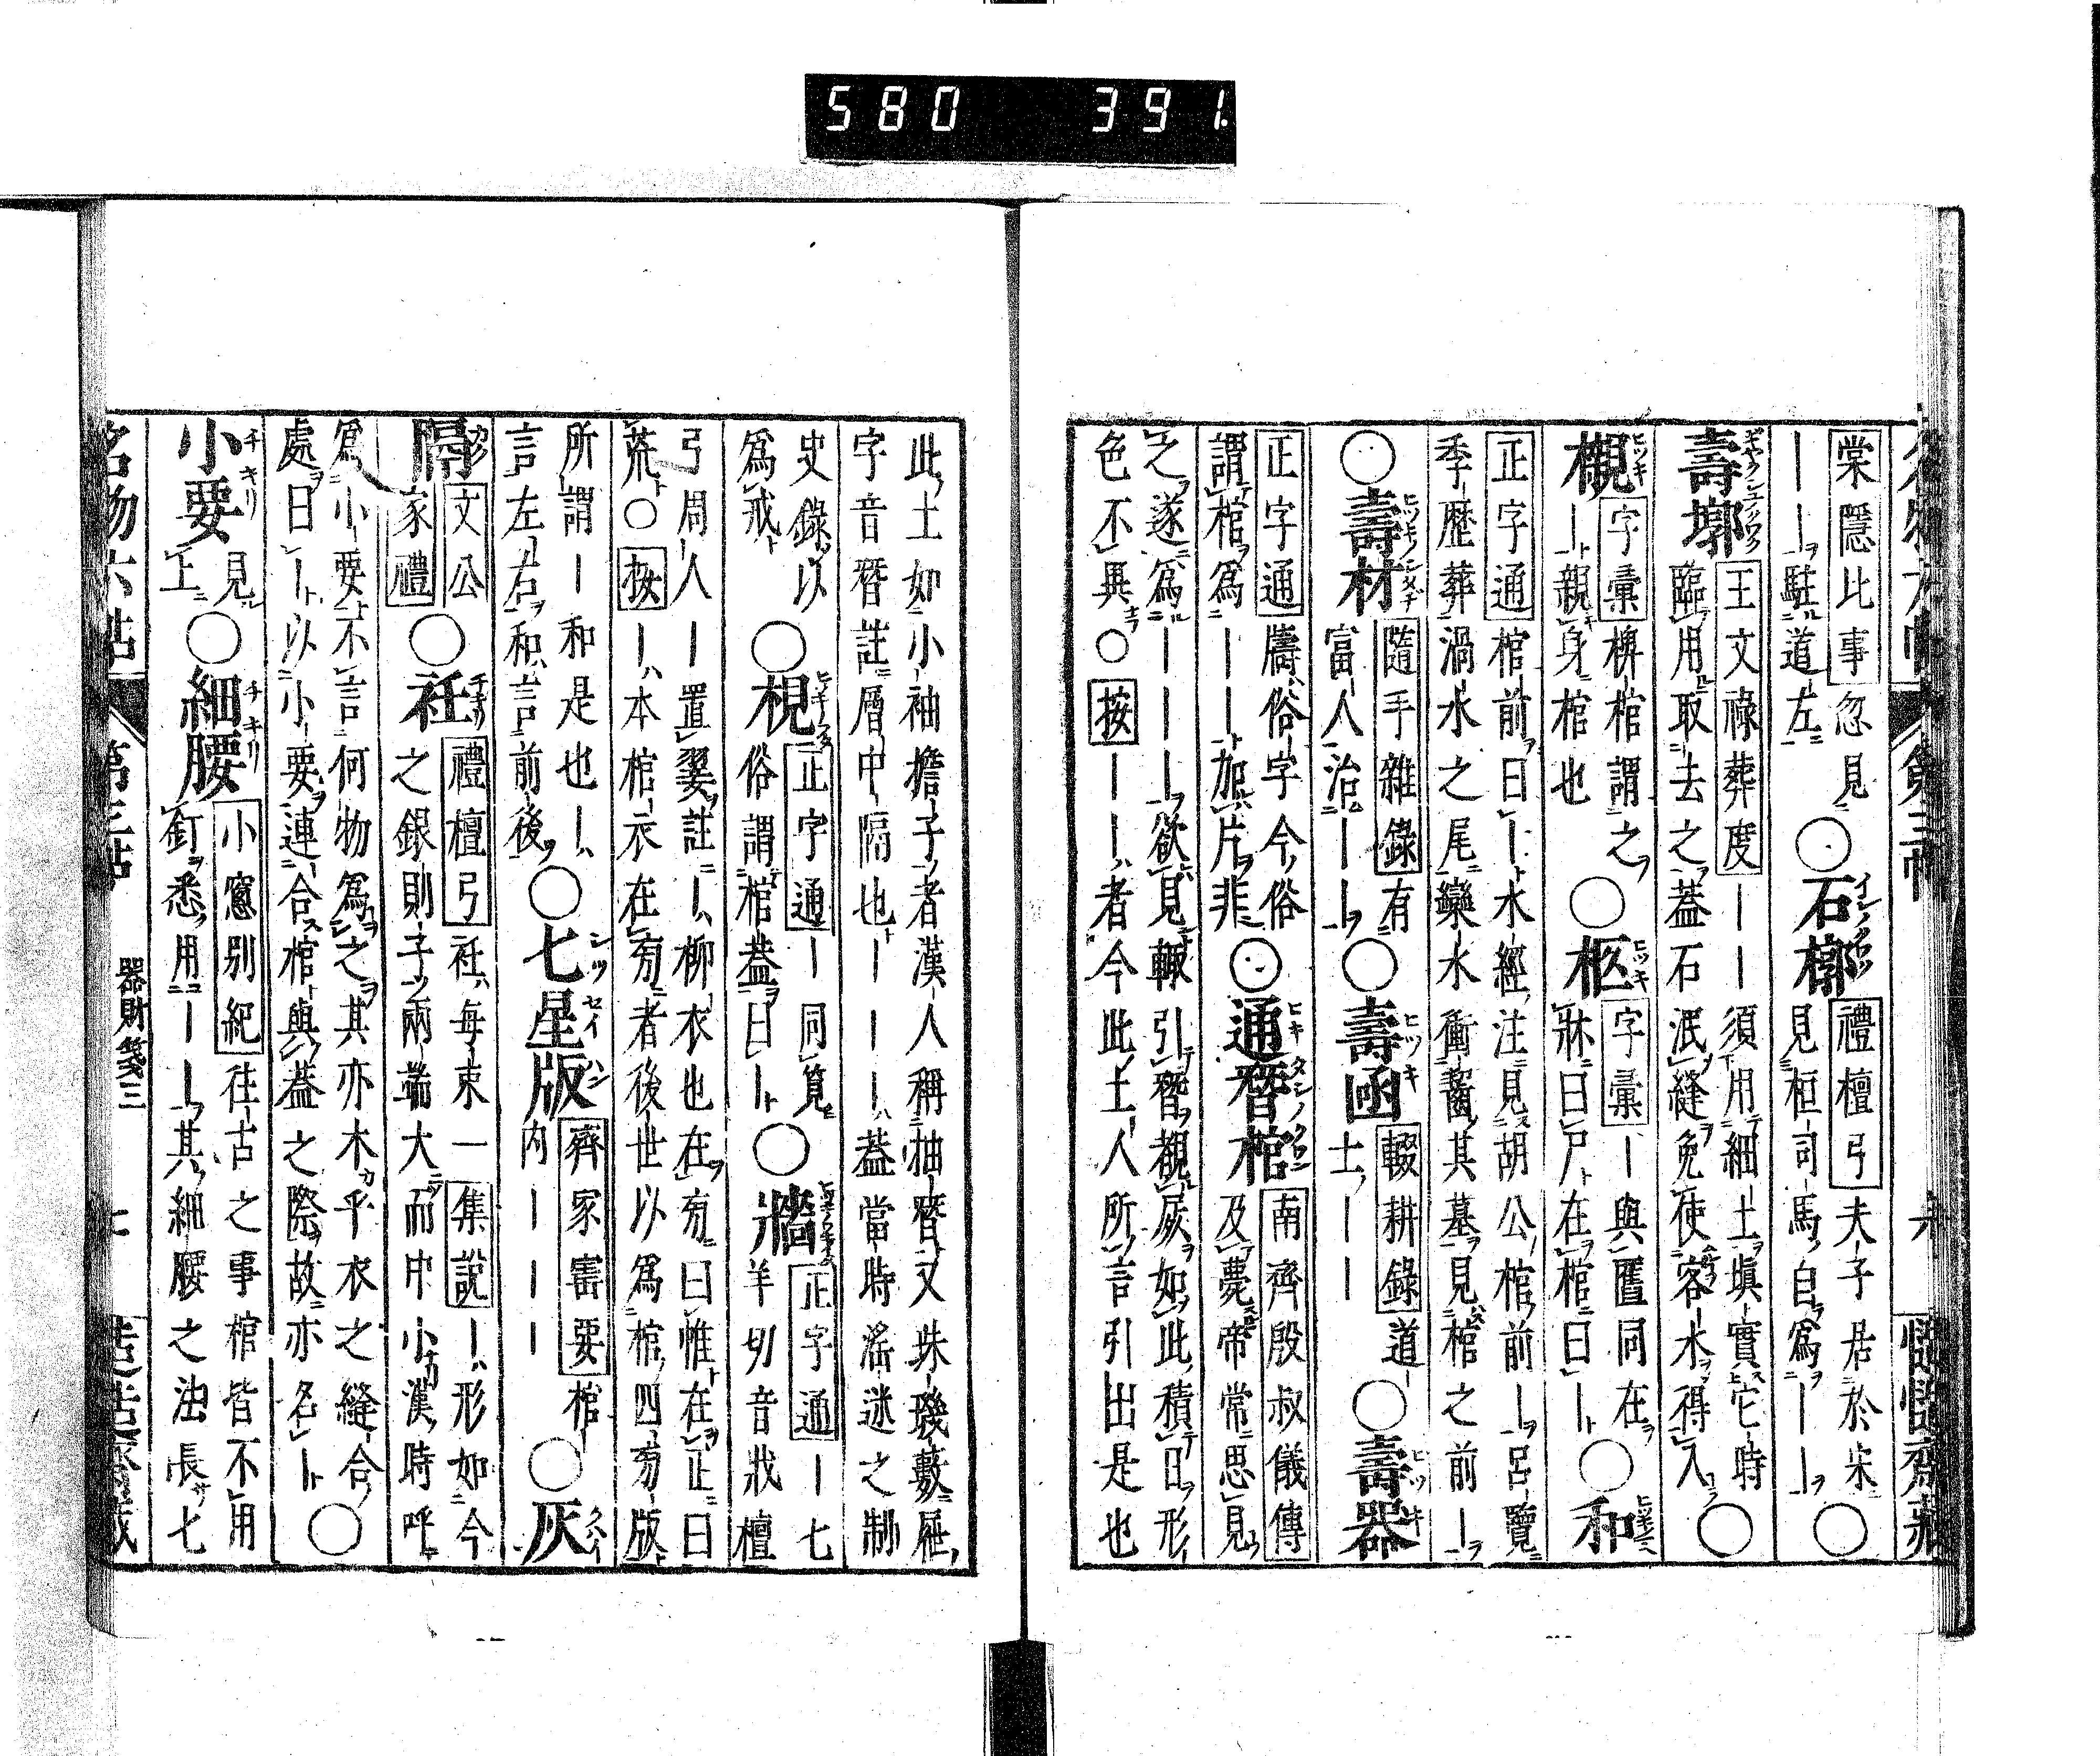 580 391
棠隱比事忽見
｜｜駐道左
○石槨禮檀弓夫子居於宋
見桓司馬自爲｜｜○
壽墎王文祿葬度｜｜須用細土塡實它時
臨用取去之蓋石泯縫免使客水得入○
櫬字彙椑棺謂之
｜親身棺也
○柩字彙｜與匶同在
牀曰尸在棺曰｜○和
正字通棺前曰｜水經注見胡公棺前｜呂覽
季歷葬渦水之尾欒水衝齧其墓見棺之前｜
○壽材隨手雜錄有
富人治｜｜
○壽函輟耕錄道
士｜｜○壽器
正字通䯪俗字今俗
謂棺爲｜｜｜加片非
○通替棺南齊殷叔儀傳
及薨帝常思見
之遂爲｜｜｜欲見輙引替覩屍如此積日形
色不異○按｜｜者今此土人所言引出是也
此土如小袖擔子者漢人稱抽替又珠璣藪屜
字音替註層中隔也｜｜｜蓋當時滛迷之制
史錄以
爲戒
○梘正字通｜同筧
俗謂棺蓋曰｜
○牆正字通｜七
羊切音戕檀
弓周人｜置翣註｜柳衣也在㫄曰惟在正曰
荒○按｜本棺衣在㫄者後世以爲棺四㫄版
所謂｜和是也｜
言左右和言前後
○七星版齊家寶要棺
内｜｜｜○灰
隔文公
家禮
○衽禮檀弓衽每束一集說｜形如今
之銀則子兩端大而中小漢時呼
爲小要不言何物爲之其亦木乎衣之縫合
處曰｜以小要連合棺與蓋之際故亦名｜○
小要見
上
○細腰小窻別紀徃古之事棺皆不用
釘悉用｜｜其細腰之法長七
名物六帖 第三帖 器財箋三